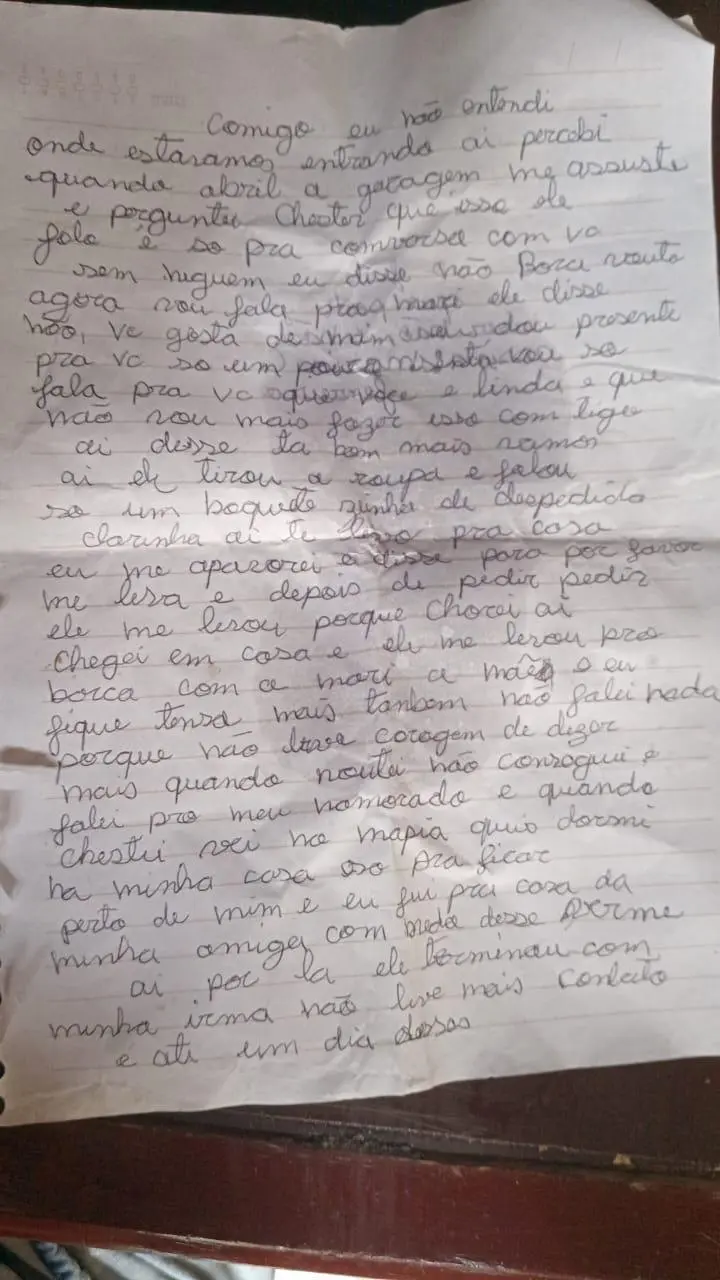 Comigo eu não entendi
onde estaramos entrando ai percebi
quando abril a garagem me assuste
e perguntei Chester que isso ele
falo é so pra comversa com vc
sem niguem eu disse não Bora vouta
agora vou fala pra mari ele disse
não, vc gosta de mim dou presente
pra vc so um vou so
fala pra vc que voçe e linda e que
não vou mais fazer isso com tigo
ai desse ta bom mais vamos
ai ele tirou a roupa e falou
so um boquete zinho de despedida
clarinha ai te levo pra casa
eu me apavorei e disse para por favor
me leva e depois de pedir pedir
ele me levou porque chorei ai
chegei em casa e ele me levou pro
borca com a mari a mãe e eu
fique tensa mais tanbem não falei nada
porque não tive coragem de dizer
mais quando voutei não conseguir e
falei pro meu namorado e quando
vei no mapia quis dormi
na minha casa so pra ficar
perto de mim e eu fui pra casa da
minha amiga com medo desse verme
ai por la ele terminau com
minha irma não tive mais contato
e ate um dia desses